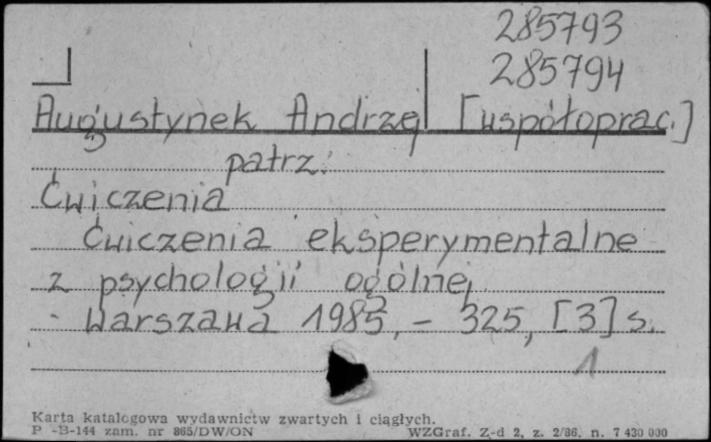 285793
285794
Augustynek Andrzej [współoprac.]
patrz:
Ćwiczenia
Ćwiczenia eksperymentalne
z psychologii ogólnej
- Warszawa 1985, - 325, [3] s.
1
Karta katalogowa wydawnictw zwartych i ciągłych.
P -B-144 zam. nr 865/DW/ON WZGraf. Z-d 2, z. 2/86, n. 7 430 000